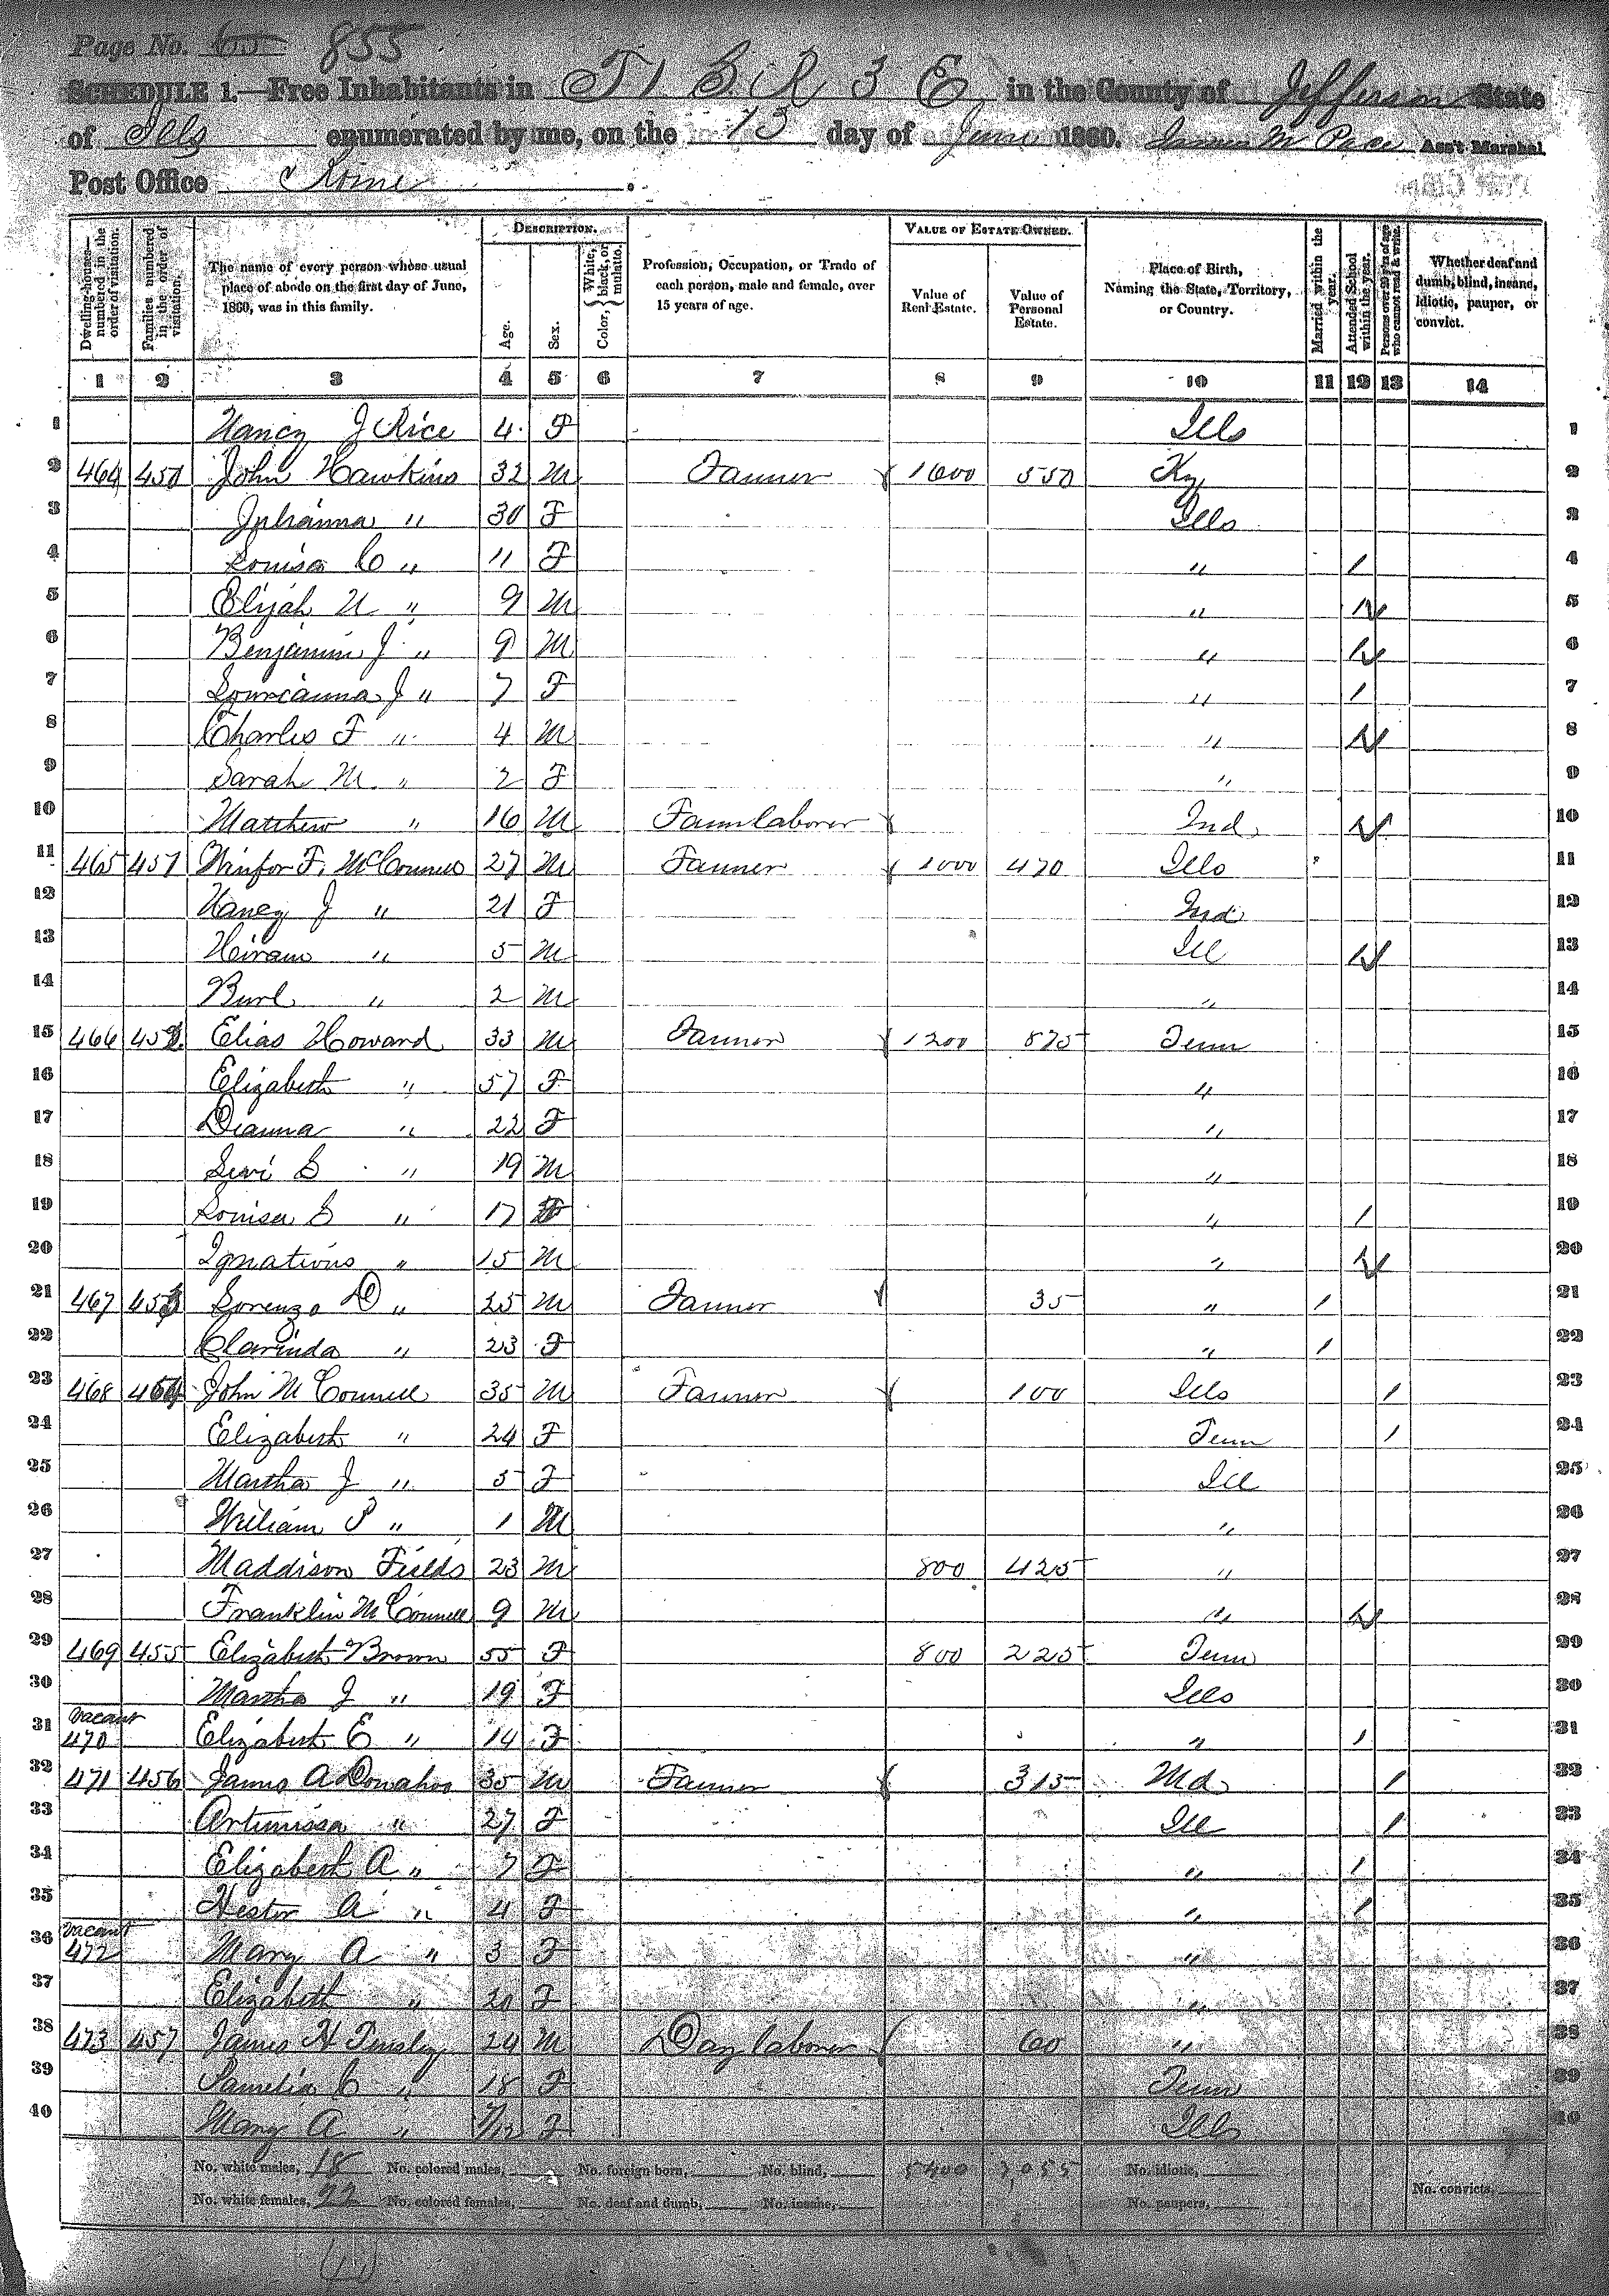 Page No. 855
SCHEDULE 1.—Free Inhabitants in T 1 S. R 3 E in the County of Jefferson State
of Ills enumerated by me, on the 13 day of June 1860. M Pace Ass't Marshal
Post Office Rome.
Dwelling-houses—numbered in the order of visitation.
Families numbered in the order of visitation.
The name of every person whose usual place of abode on the first day of June, 1860, was in this family.
DESCRIPTION.
Age.
Sex.
Color, White, black, or mulatto.
Profession, Occupation, or Trade of each person, male and female, over 15 years of age.
VALUE OF ESTATE OWNED.
Value of Real Estate.
Value of Personal Estate.
Place of Birth, Naming the State, Territory, or Country.
Married within the year.
Attended School within the year.
Persons over 20 y'rs of age who cannot read & write.
Whether deaf and dumb, blind, insane, idiotic, pauper, or convict.
1 2 3 4 5 6 7 8 9 10 11 12 13 14
1 Nancy J Rice 4 F Ills 1
2 464 450 John Hawkins 32 M Farmer 1600 550 Ky 2
3 Julianna " 30 F Ills 3
4 Louisa C " 11 F " / 4
5 Elijah N " 9 M " 5
6 Benjamin J " 9 M " 6
7 J " 7 F " / 7
8 Charles F " 4 M " 8
9 Sarah M " 2 F " 9
10 Matthew " 16 M Farm laborer Ind 10
11 465 451 F. McConnell 27 M Farmer 1000 470 Ills 11
12 Nancy J " 21 F Ind 12
13 Hiram " 5 M Ill 13
14 Burl " 2 M " 14
15 466 452 Elias Howard 33 M Farmer 1200 875 Tenn 15
16 Elizabeth " 57 F " 16
17 Dianna " 22 F " 17
18 Levi S " 19 M " 18
19 Louisa S " 17 F " / 19
20 Ignatious " 15 M " 20
21 467 453 Lorenzo D " 25 M Farmer 35 " / 21
22 Clarinda " 23 F " / 22
23 468 454 John McConnell 35 M Farmer 100 Ills / 23
24 Elizabeth " 24 F Tenn / 24
25 Martha J " 5 F Ill 25
26 William P " 1 M " 26
27 Maddison Fields 23 M 800 425 " 27
28 Franklin McConnell 9 M " 28
29 469 455 Elizabeth Brown 55 F 800 225 Tenn 29
30 Martha J " 19 F Ills 30
31 vacant 470 Elizabeth E " 14 F " / 31
32 471 456 James A Donahoo 35 M Farmer 315 Md / 32
33 Artimissa " 27 F Ill / 33
34 Elizabeth A " 7 F " / 34
35 Hester A " 4 F " / 35
36 vacant 472 Mary A " 3 F " 36
37 Elizabeth " 20 F " 37
38 473 457 James H Tinsley 24 M Day laborer 60 " 38
39 Pamelia C " 18 F Tenn 39
40 Mary A " F Ills 40
No. white males, 18 No. colored males, No. foreign born, No. blind, 5400 3055 No. idiotic,
No. white females, 22 No. colored females, No. deaf and dumb, No. insane, No. paupers, No. convicts,